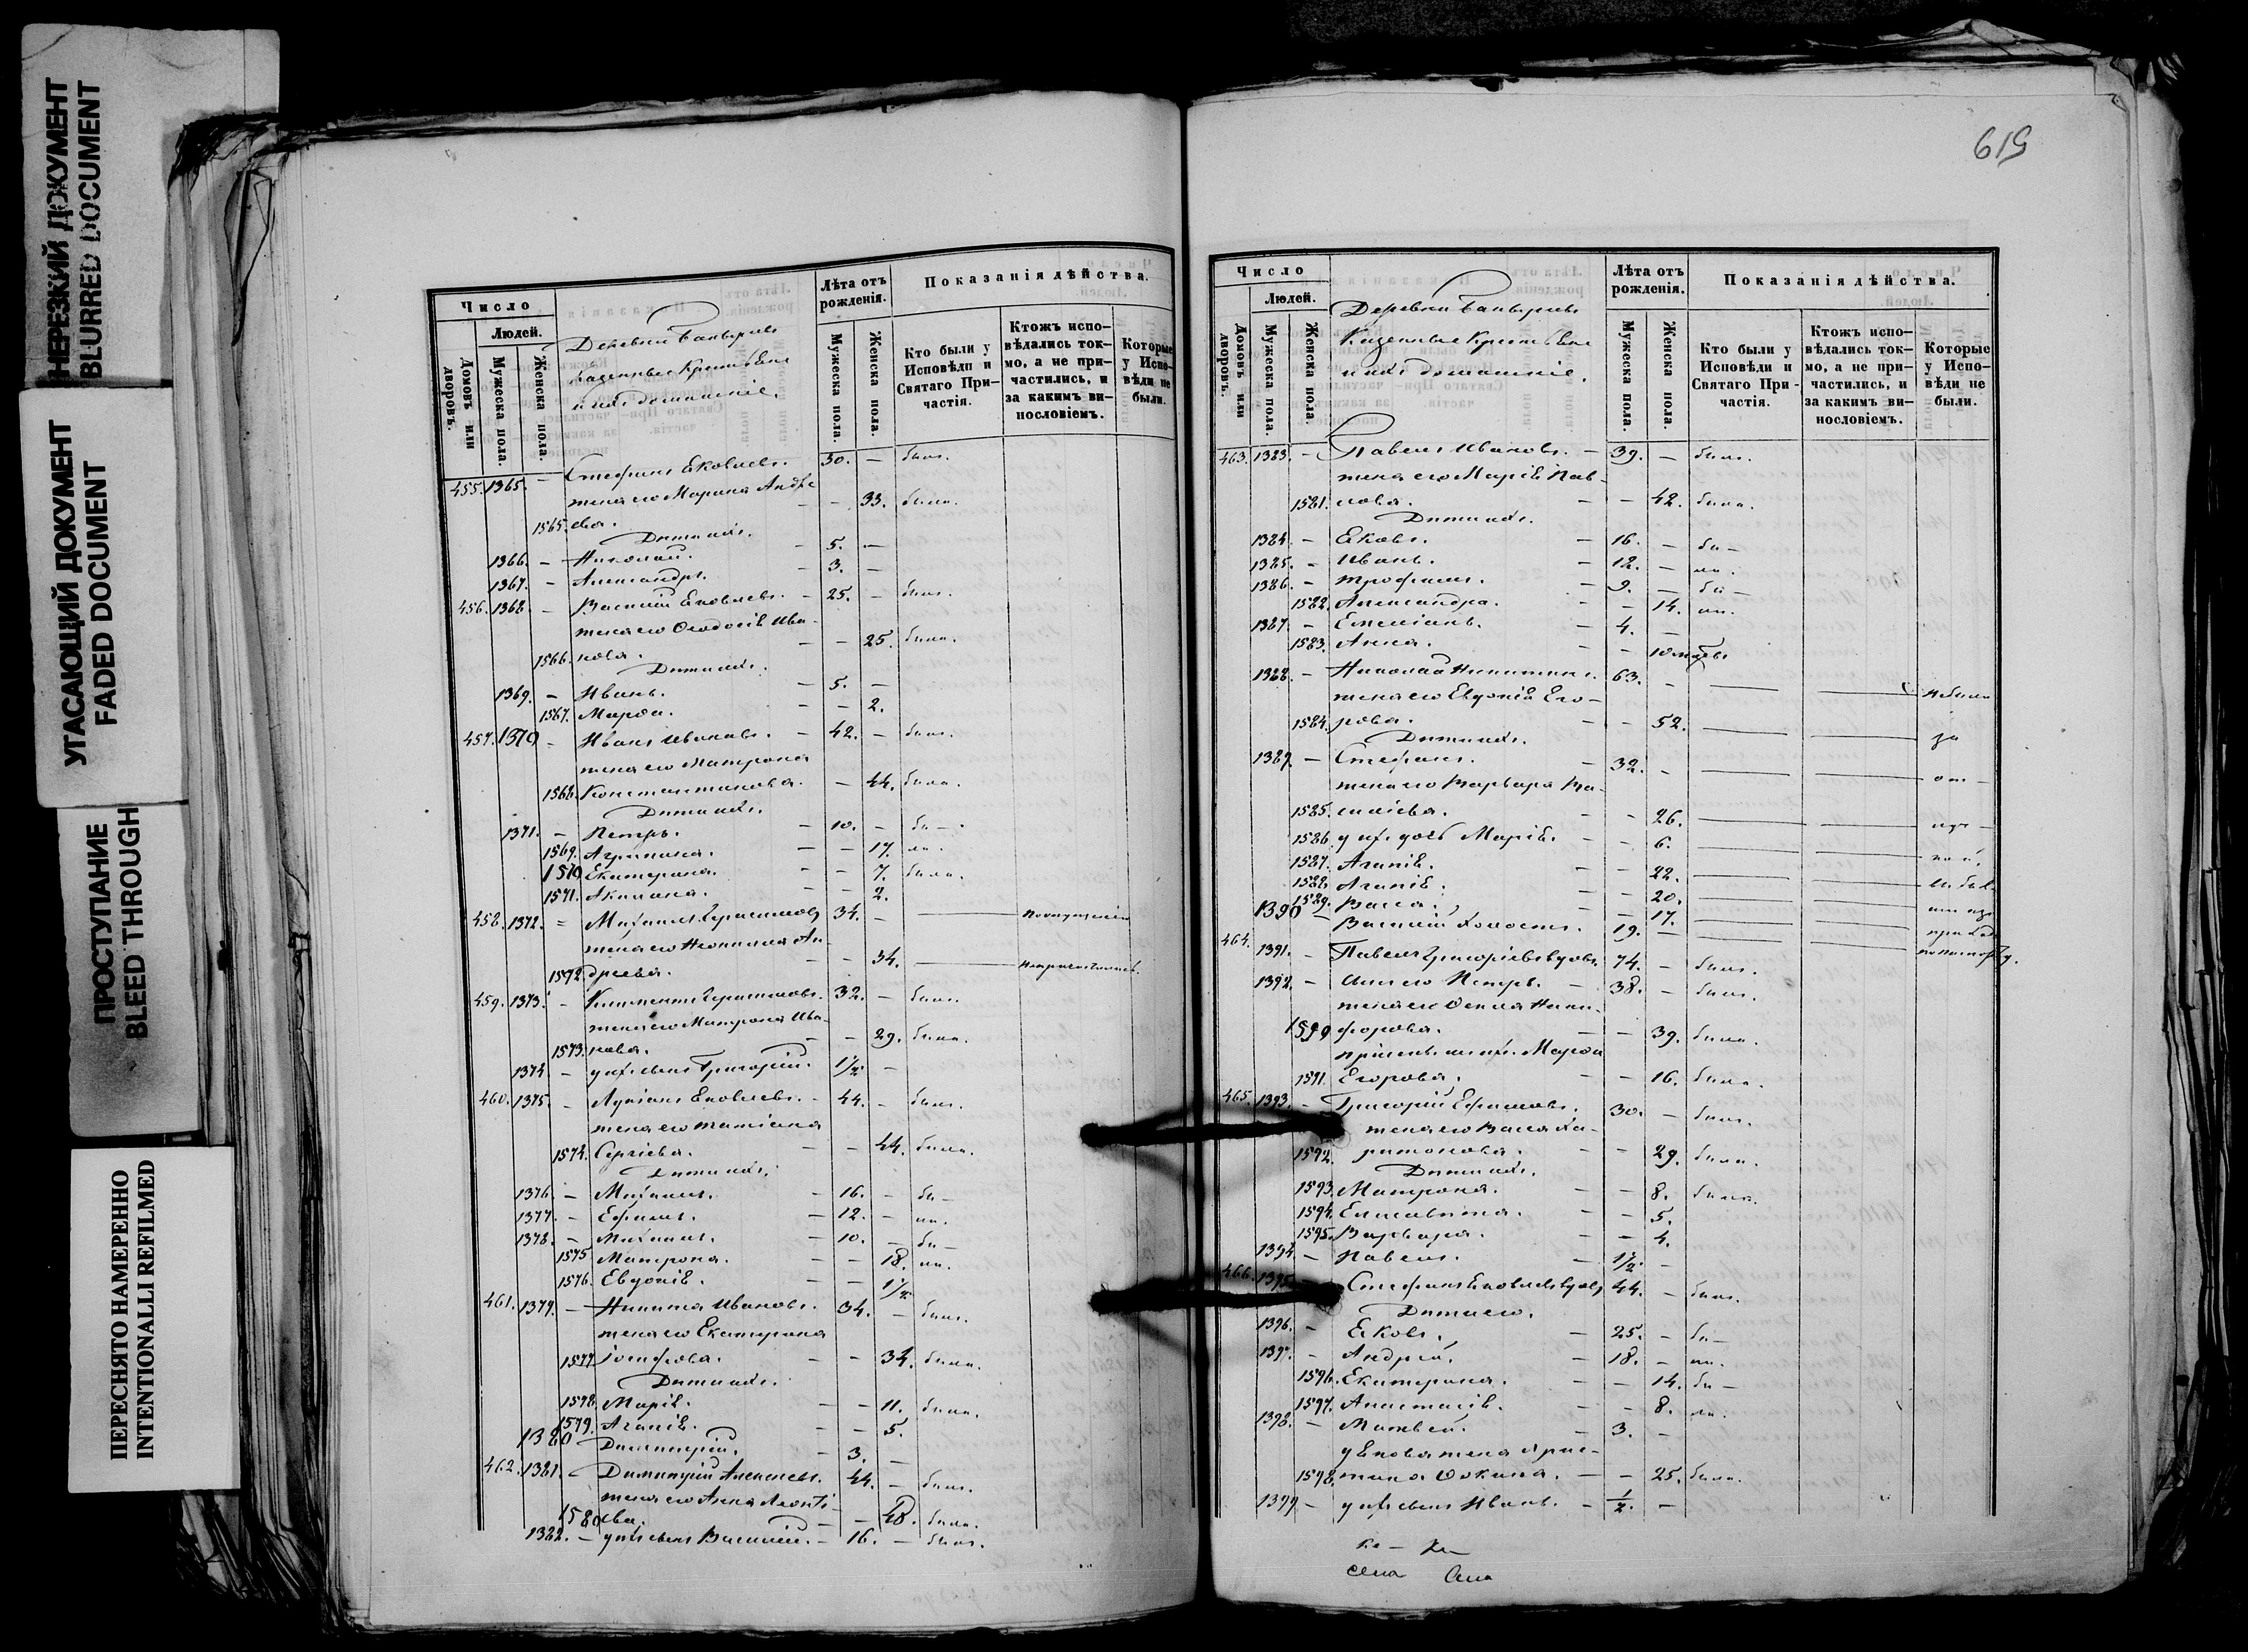 НЕРЕЗКИЙ ДОКУМЕНТ
BLURRED DOCUMENT
УГАСАЮЩИЙ ДОКУМЕНТ
FADED DOCUMENT
ПРОСТУПАНИЕ
BLEED THROUGH
ПЕРЕСНЯТО НАМЕРЕННО
INTENTIONALLI REFILMED
Число
Людей.
Домовъ или дворовъ.
Мужеска пола.
Женска пола.
Деревни
Казенные Крестьяне
и ихъ домашніе.
Лѣта отъ рожденія.
Мужеска пола.
Женска пола.
Показанія дѣйства.
Кто были у Исповѣди и Святаго Причастія.
Ктожъ исповѣдались токмо, а не причастились, и за какимъ винословіемъ.
Которые у Исповѣди не были.
455. 1365. — Стефанъ Яковлевъ. 30. — былъ.
жена его Марина Андре
1565. ева. — — 33. была.
Дети ихъ.
1366. — Николай. — 5. —
1367. — Александръ. — 3. —
456. 1368. — Василій Яковлевъ. — 25. — былъ.
жена его Ѳеодосія Ива-
1566. нова. — — 25. была.
Дети ихъ.
1369. — Иванъ. — 5. —
1567. Марѳа. — — 2.
457. 1370 — Иванъ Ивановъ. — 42. — былъ.
жена его Матрона
1568. Константинова. — 44. была.
Дети ихъ.
1371. — Петръ. — 10. — бы—
1569. Агрипина. — — 17. ли.
1570 Екатерина. — — 7. была.
1571. Акилина. — — 2.
458. 1372. = Михаилъ Герасимовъ 34. — по опущенію
жена его Неонилла Ан-
1572. дреева. — — 34. не причастились.
459. 1373. — Климентъ Герасимовъ. 32. — былъ.
жена его Матрона Ива-
1573. нова. — — 29. была.
1374 — у ихъ сынъ Григорій. 1½. —
460. 1375. — Лукіанъ Яковлевъ. — 44. — былъ.
жена его Татіана
1574. Сергіева. — — 44. была.
Дети ихъ.
1376. — Михаилъ. — 16. — бы—
1377. — Ефимъ. — 12. — ли.
1378. — Михаилъ. — 10. — бы—
1575 Матрона. — — 18. ли.
1576. Евдокія. — — 1½
461. 1379. — Никита Ивановъ. 34. — былъ.
жена его Екатерина
1577 Іосифова. — — 34. была.
Дети ихъ.
1578. Марія. — — 11. была.
1579. Агапія. — — 5.
1380 Димитрій. — 3. —
462. 1381. — Димитрій Алексеевъ. 44. — былъ.
жена его Анна Леонті-
1580 ева. — — 48. была.
1382. — у ихъ сынъ Василій. — 16. — былъ.
619
Число
Людей.
Домовъ или дворовъ.
Мужеска пола.
Женска пола.
Деревни
Казенные Крестьяне
и ихъ домашніе.
Лѣта отъ рожденія.
Мужеска пола.
Женска пола.
Показанія дѣйства.
Кто были у Исповѣди и Святаго Причастія.
Ктожъ исповѣдались токмо, а не причастились, и за какимъ винословіемъ.
Которые у Исповѣди не были.
463. 1383. — Павелъ Ивановъ. — 39. — былъ.
жена его Марія Пав-
1581. лова. — — 42. была.
Дети ихъ.
1384. — Яковъ. — 16. — бы—
1385. — Иванъ. — 12. — ли.
1386. — Трофимъ. — 9. — бы—
1582. Александра. — — 14. ли.
1387. — Емеліанъ. — 4. —
1583. Анна. — — 10 мѣсе
1388. — Николай Никитинъ. 63. — не были
жена его Евдокія Его-
1584. рова. — — 52. за
Дети ихъ.
1389. — Стефанъ. — 32. — от—
жена его Варвара Ва-
1585. силіева. — — 26.
1586. у ихъ дочь Марія. — — 6.
1587. Агапія. — — 22.
1588. Агапія. — — 20.
1589. Васса. — — 17.
1390 — Василій холостъ. 19. —
464. 1391. — Павелъ Григоріевъ вдовъ. 74. — былъ.
1392. — Сынъ его Петръ. — 38. — былъ.
жена его Ѳекла Ники-
1590 форова. — — 39. была.
Марѳа
1591. Егорова. — — 16. была.
465. 1393. — Григорій Ефимовъ. 30. — былъ.
жена его Васса Ха-
1592. ритонова. — — 29. была.
Дети ихъ.
1593. Матрона. — — 8. была.
1594. Елисавета. — — 5.
1595. Варвара. — — 4.
1394. — Павелъ. — 1½. —
466. 1395. — Стефанъ Яковлевъ вдовъ 44. — былъ.
Дети его.
1396. — Яковъ. — 25. — бы—
1397. — Андрей. — 18. — ли.
1596. Екатерина. — — 14. бы—
1597. Анастасія. — — 8. ли.
1398. — Матвей. — 3. —
у Якова жена Хрис-
1598. тина Ѳокина. — — 25. была.
1399 — у ихъ сынъ Иванъ. — ½. —